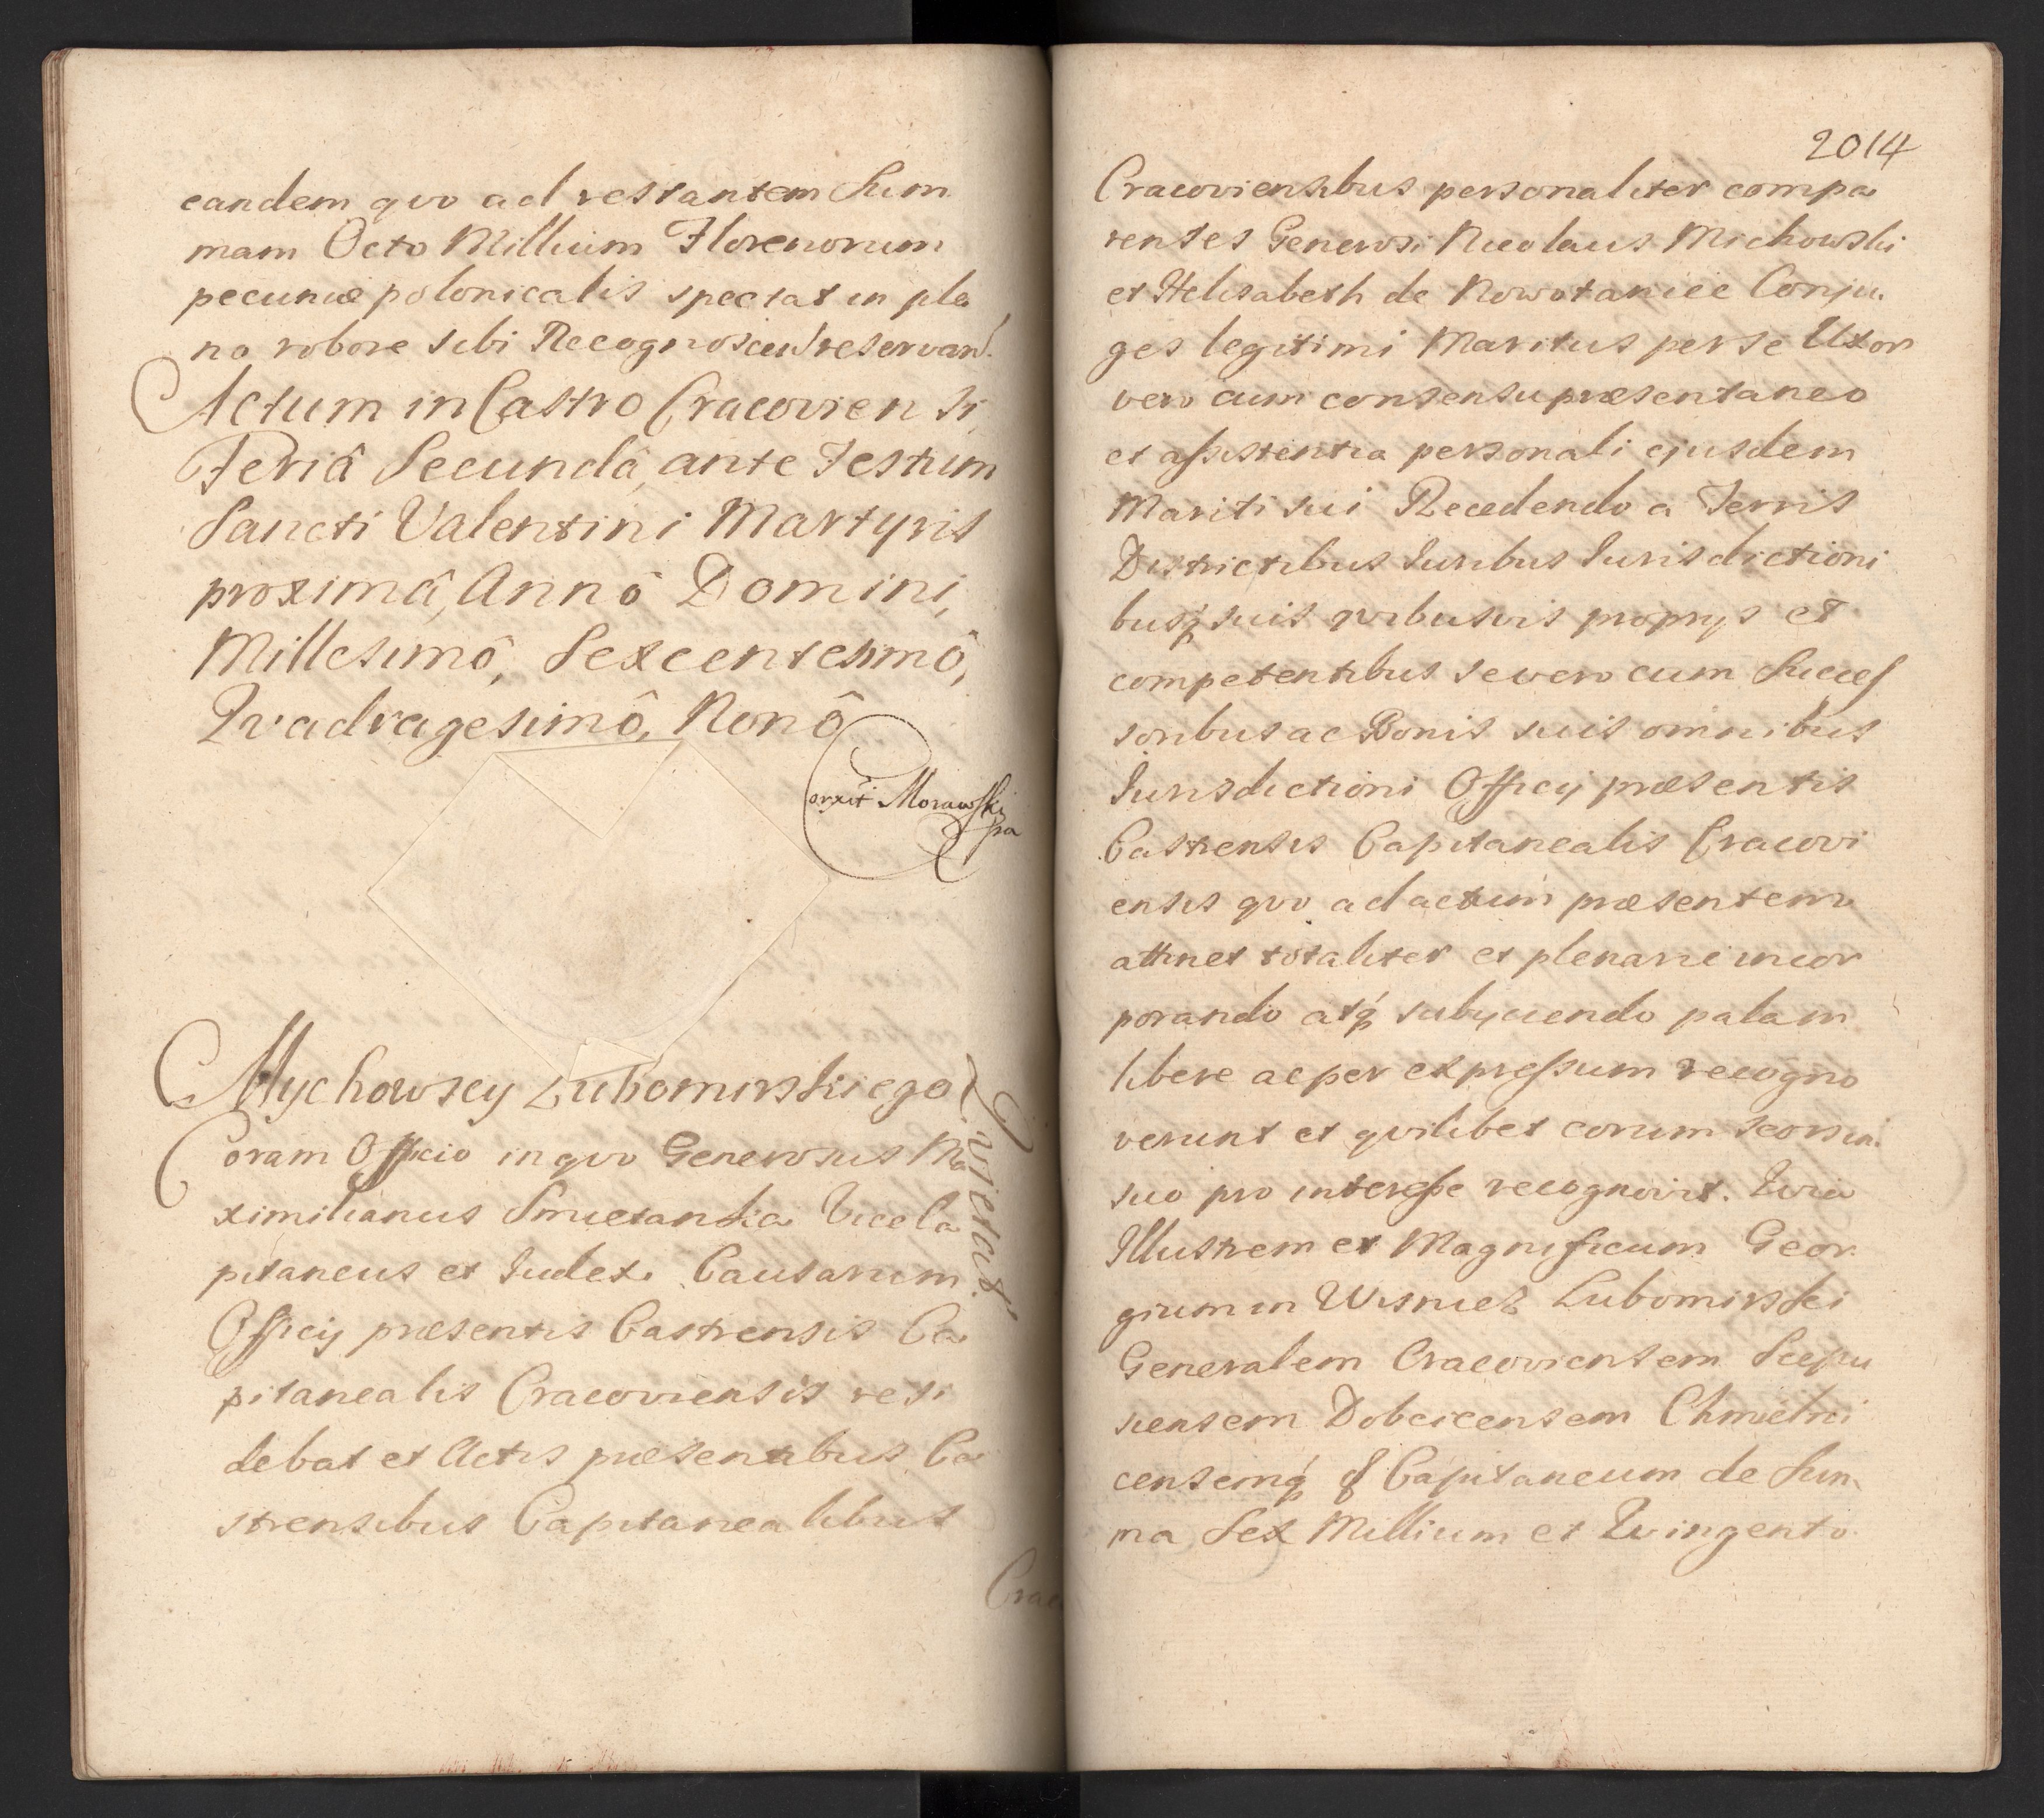 eandem quo ad restantem Sum
mam Octo Millium Florenorum
pecuniæ polonicalis spectat in ple
no robore sibi Recognoscen reservan.
Actum in Castro Cracovien si
Feriâ Secundâ, ante Festum
Sancti Valentini Martyris
proximâ, Annô Domini,
Millesimô, Sexcentesimô,
Qvadragesimô, Nonô
Corrxit Morawski
pa
Mychowscy Lubomirskiego
Qvietat
Coram Officio in qvo Generosus Ma
ximilianus Smietanka Viceca
pitaneus et Iudex Causarum
Officij præsentis Castrensis Ca
pitanealis Cracoviensis resi
debat et Actis præsentibus Ca
strensibus Capitanealibus
Crac
2014
Cracoviensibus personaliter compa
rentes Generosi Nicolaus Michowski
et Helisabeth de Nowotaniec Conju.
ges legitimi Maritus per se Uxor
vero cum consensu præsentaneo
et assistentia personali ejusdem
Mariti sui Recedendo a Terris
Districtibus Iuribus Iurisdictioni
busq́ suis qvibusvis proprys et
competentibus se vero cum Succes
soribus ac Bonis suis omnibus
Iurisdictioni Officij præsentis
Castrensis Capitanealis Cracovi
ensis qvo ad actum præsentem
attinet totaliter et plenarie incor
porando atq́ subyciendo palam
libere ac per expressum recogno
verunt et qvilibet eorum seorsim
suo pro interesse recognovit. Qvia
Illustrem et Magnificum Geor
gium in Wisnicz Lubomirski
Generalem Cracoviensem Scepu
siensem Dobcicensem Chmielni
censemq́ & Capitaneum de Sum
ma Sex Millium et Qvingento